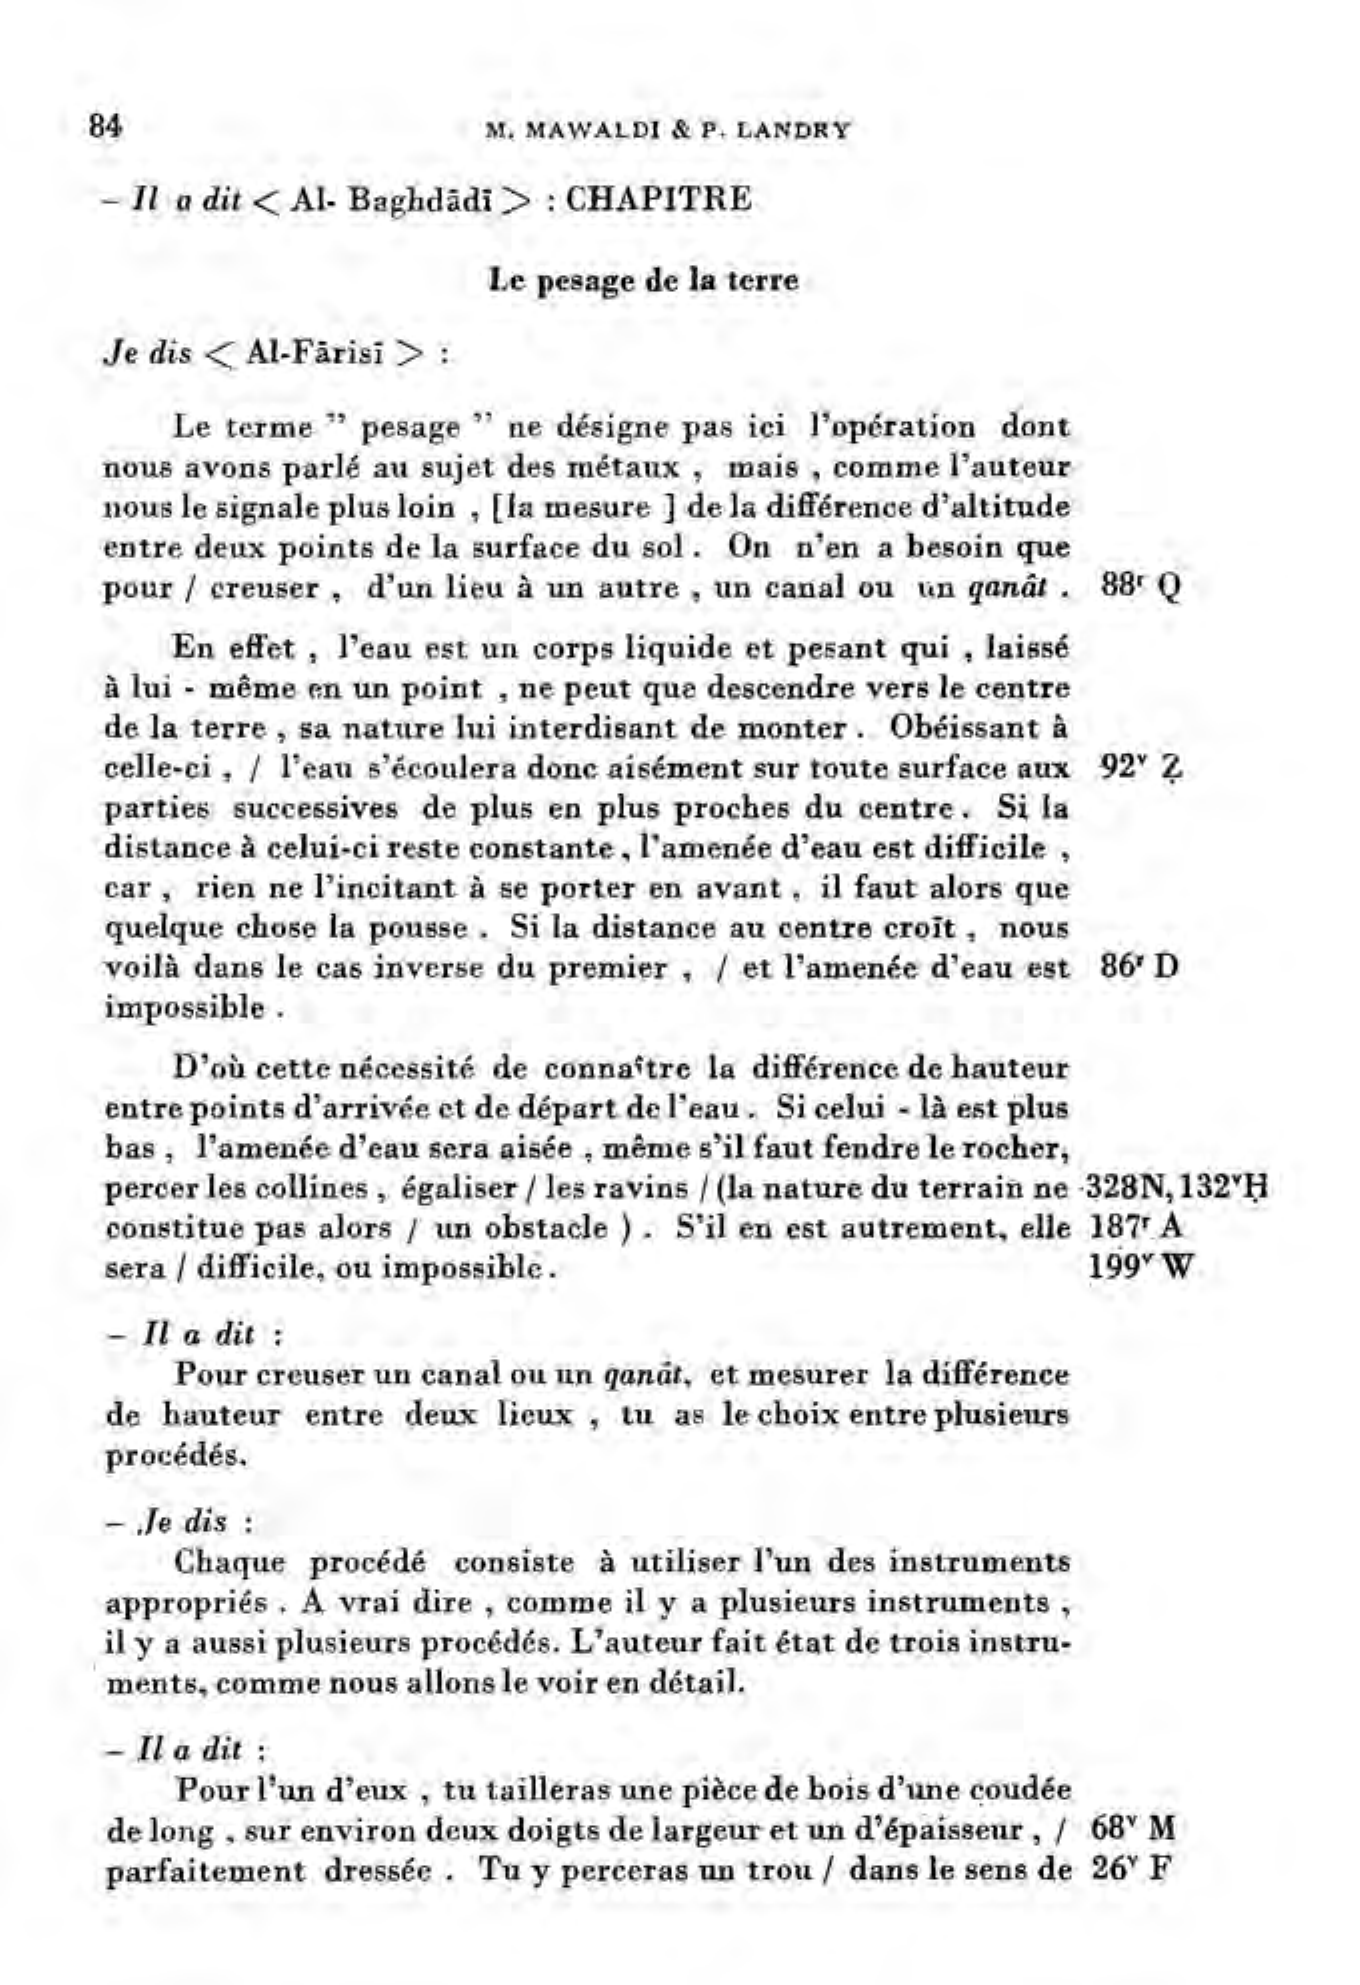 84 M. MAWALDI & P. LANDRY
– Il a dit < Al- Baghdādī > : CHAPITRE
Le pesage de la terre
Je dis < Al-Fārisī > :
Le terme ” pesage ” ne désigne pas ici l'opération dont
nous avons parlé au sujet des métaux , mais , comme l'auteur
nous le signale plus loin , [la mesure ] de la différence d'altitude
entre deux points de la surface du sol . On n'en a besoin que
pour / creuser , d'un lieu à un autre , un canal ou un qanât . 88ʳ Q
En effet , l'eau est un corps liquide et pesant qui , laissé
à lui - même en un point , ne peut que descendre vers le centre
de la terre , sa nature lui interdisant de monter . Obéissant à
celle-ci , / l'eau s'écoulera donc aisément sur toute surface aux 92ᵛ Ẓ
parties successives de plus en plus proches du centre . Si la
distance à celui-ci reste constante , l'amenée d'eau est difficile ,
car , rien ne l'incitant à se porter en avant , il faut alors que
quelque chose la pousse . Si la distance au centre croît , nous
voilà dans le cas inverse du premier , / et l'amenée d'eau est 86ʳ D
impossible .
D'où cette nécessité de connaître la différence de hauteur
entre points d'arrivée et de départ de l'eau . Si celui - là est plus
bas , l'amenée d'eau sera aisée , même s'il faut fendre le rocher,
percer les collines , égaliser / les ravins / (la nature du terrain ne 328N, 132ᵛḤ
constitue pas alors / un obstacle ) . S'il en est autrement, elle 187ʳ A
sera / difficile, ou impossible . 199ᵛ W
– Il a dit :
Pour creuser un canal ou un qanât, et mesurer la différence
de hauteur entre deux lieux , tu as le choix entre plusieurs
procédés.
– Je dis :
Chaque procédé consiste à utiliser l'un des instruments
appropriés . A vrai dire , comme il y a plusieurs instruments ,
il y a aussi plusieurs procédés. L'auteur fait état de trois instru-
ments, comme nous allons le voir en détail.
– Il a dit :
Pour l'un d'eux , tu tailleras une pièce de bois d'une coudée
de long , sur environ deux doigts de largeur et un d'épaisseur , / 68ᵛ M
parfaitement dressée . Tu y perceras un trou / dans le sens de 26ᵛ F